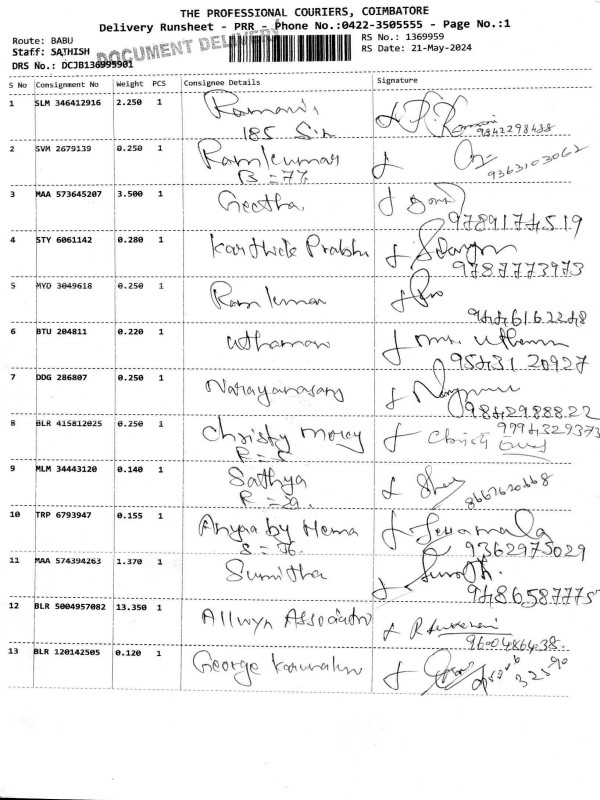 THE PROFESSIONAL COURIERS, COIMBATORE
Delivery Runsheet - PRR - Phone No.:0422-3505555 - Page No.:1
Route: BABU
RS No.: 1369959
Staff: SATHISH
DOCUMENT
RS Date: 21-May-2024
DRS No.: DCJB136995901
S No Consignment No Weight PCS Consignee Details Signature
1 SLM 346412916 2.250 1 Ramani,
185 9842298438
2 SVM 2679139 0.250 1 Ramkumar
B = 77. 9363103062
3 MAA 573645207 3.500 1 Geetha
9789174519
4 STY 6061142 0.280 1 Karthick Prabhu
9787773973
5 MYD 3049618 0.250 1 Ram kumar
9446162248
6 BTU 204811 0.220 1 uthaman
9543120927
7 DDG 286807 0.250 1 Narayanasamy
9842988822
8 BLR 415812025 0.250 1 Christy mercy
9994329373
9 MLM 34443120 0.140 1 Sathya
R = 29. 8667620668
10 TRP 6793947 0.155 1 by Hema
S = 76. 9362975029
11 MAA 574394263 1.370 1 Sumitha
9486587775
12 BLR 5004957082 13.350 1 Allwyn Associates
9600486438
13 BLR 120142505 0.120 1 George